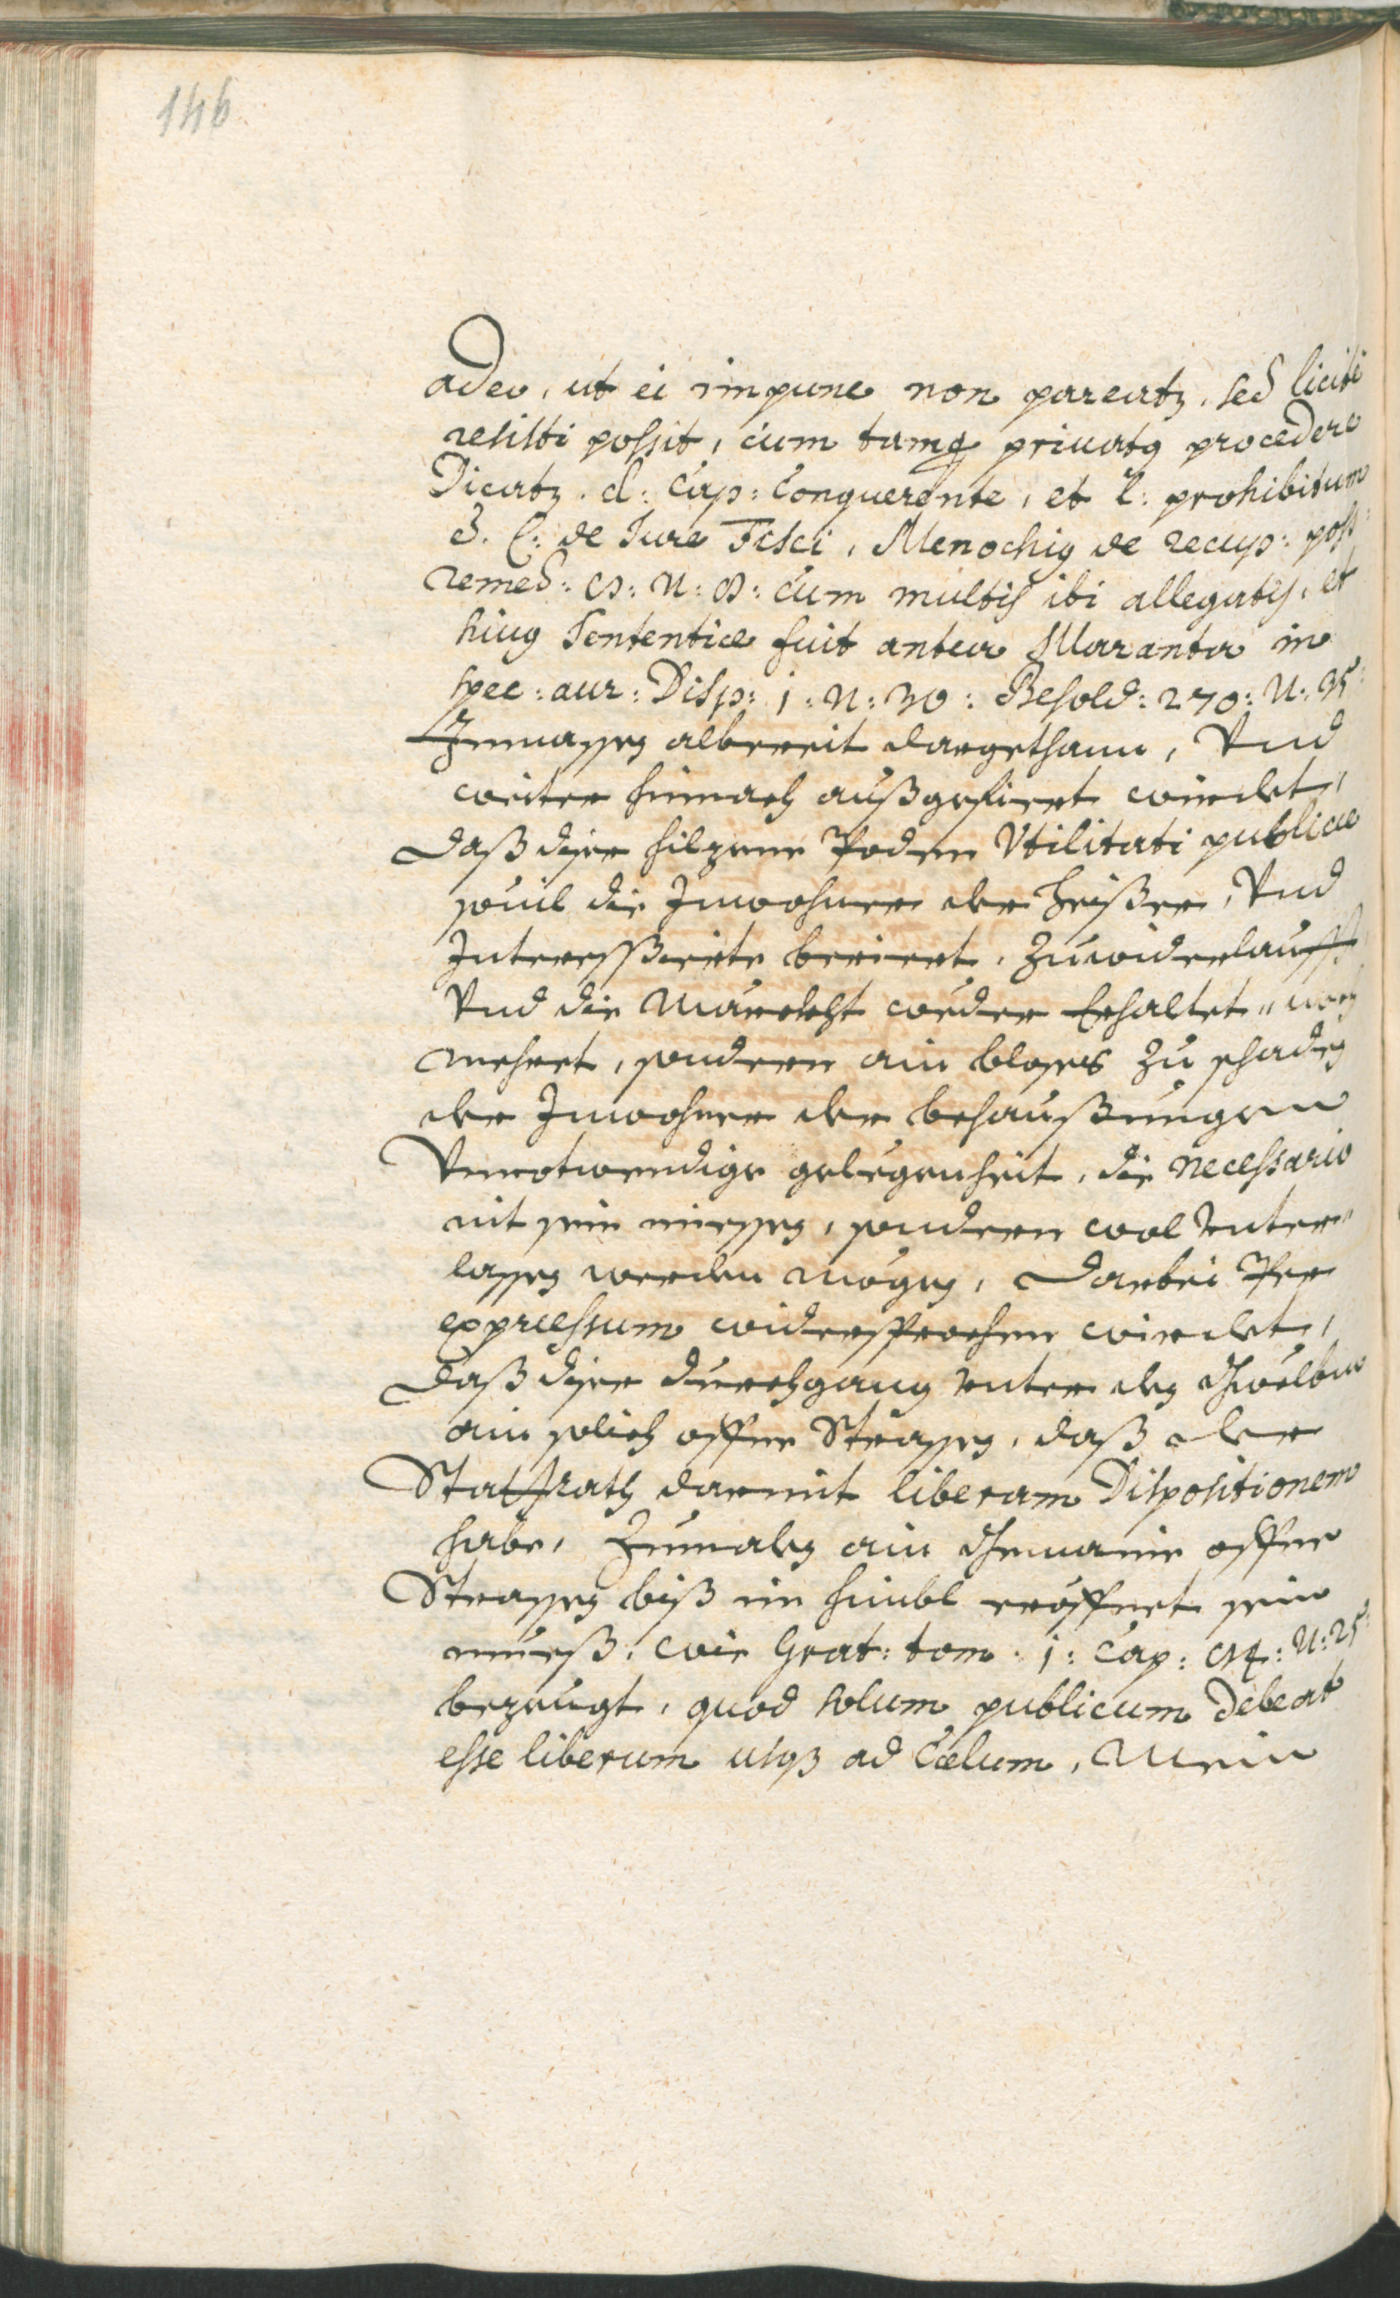 146
adeo, ut ei impune non pareatur, sed licite
resisti possit, cum tamq privatus procedere
Dicatur. d: Cap: Conquerente, et l: prohibitum
3. C: de Jure Fisci, Menochius de recup: poss:
remed: 9: N: 8: cum multis ibi allegatis, et
huius Sententiae fuit antea Maranta in
spec: aur: Disp: 1: N: 30: Besold: 270: N: 35:
Inmassen albereit dargethann, Vnd
weiter hinnach außgefiert wirdet,
Daß diser hilzene Poden Vtilitati publicae
souil die Inwohner der heißer, Vnd
Interessierte berient, Zuwiderlaufft
Vnd die Maurekht weder Erhaltet, noch
mehret, sondern ain bloses Zu schaden
der Inwohner der behaußungen
Vnnotwendige gelegenheit, die necessario
nit sein miessen, sondern wol Vnter-
lassen werden mögen, Darbei Per
expressum widersprochen wirdet,
Daß diser durchgang Vnter den Gwelben
ain solich offne Strassen, daß der
Stattrath darmit liberam Dispositionem
habe, Zumalen ain Gemaine offne
Strassen biß in himbl eröffnet sein
mueß, wie Grat: tom: 1: Cap: 94: N: 25:
bezeugt, quod solum publicum Debeat
esse liberum usq3 ad Caelum, Mein